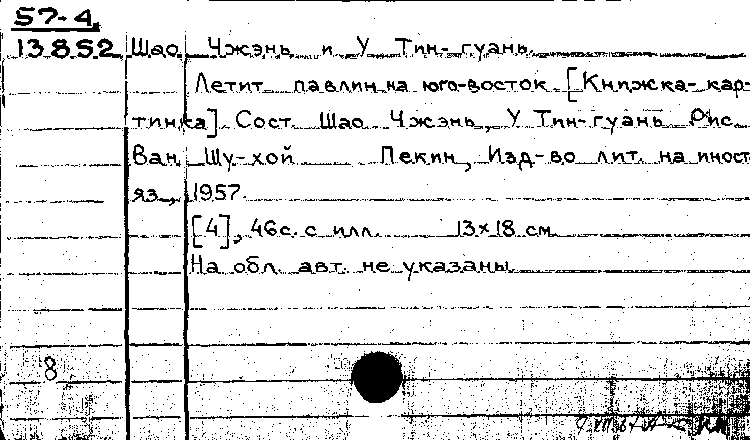 57-4
13852 Шао Чжэнь и У Тин-гуань.
Летит павлин на юго-восток. [Книжка-кар-
тинка]. Сост. Шао Чжэнь, У Тин-гуань. Рис.
Ван Шу-хой. Пекин, Изд-во лит. на иност.
яз., 1957.
[4], 46с. с илл. 13×18 см.
На обл. авт. не указаны.
8